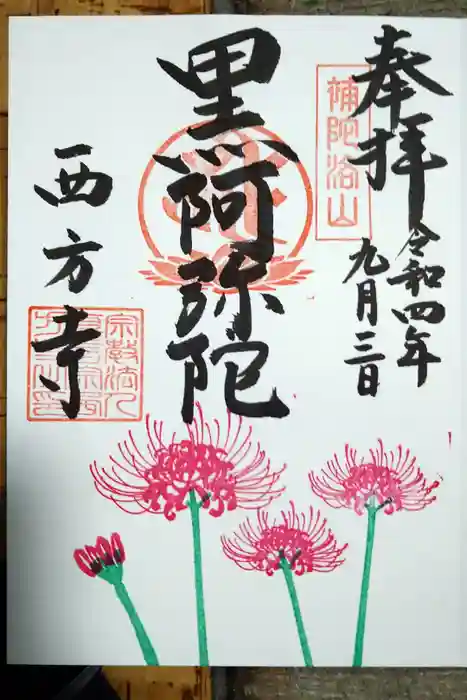 奉拝
補陀洛山
令和四年
九月三日
黒阿弥陀
西方寺